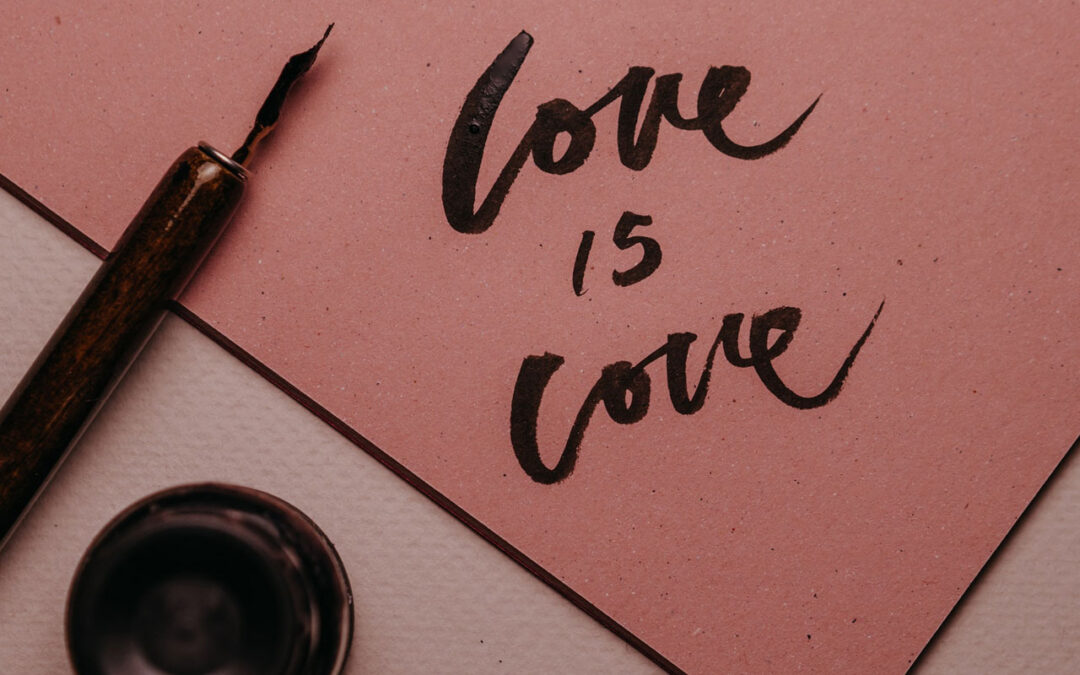 Love
is
Love